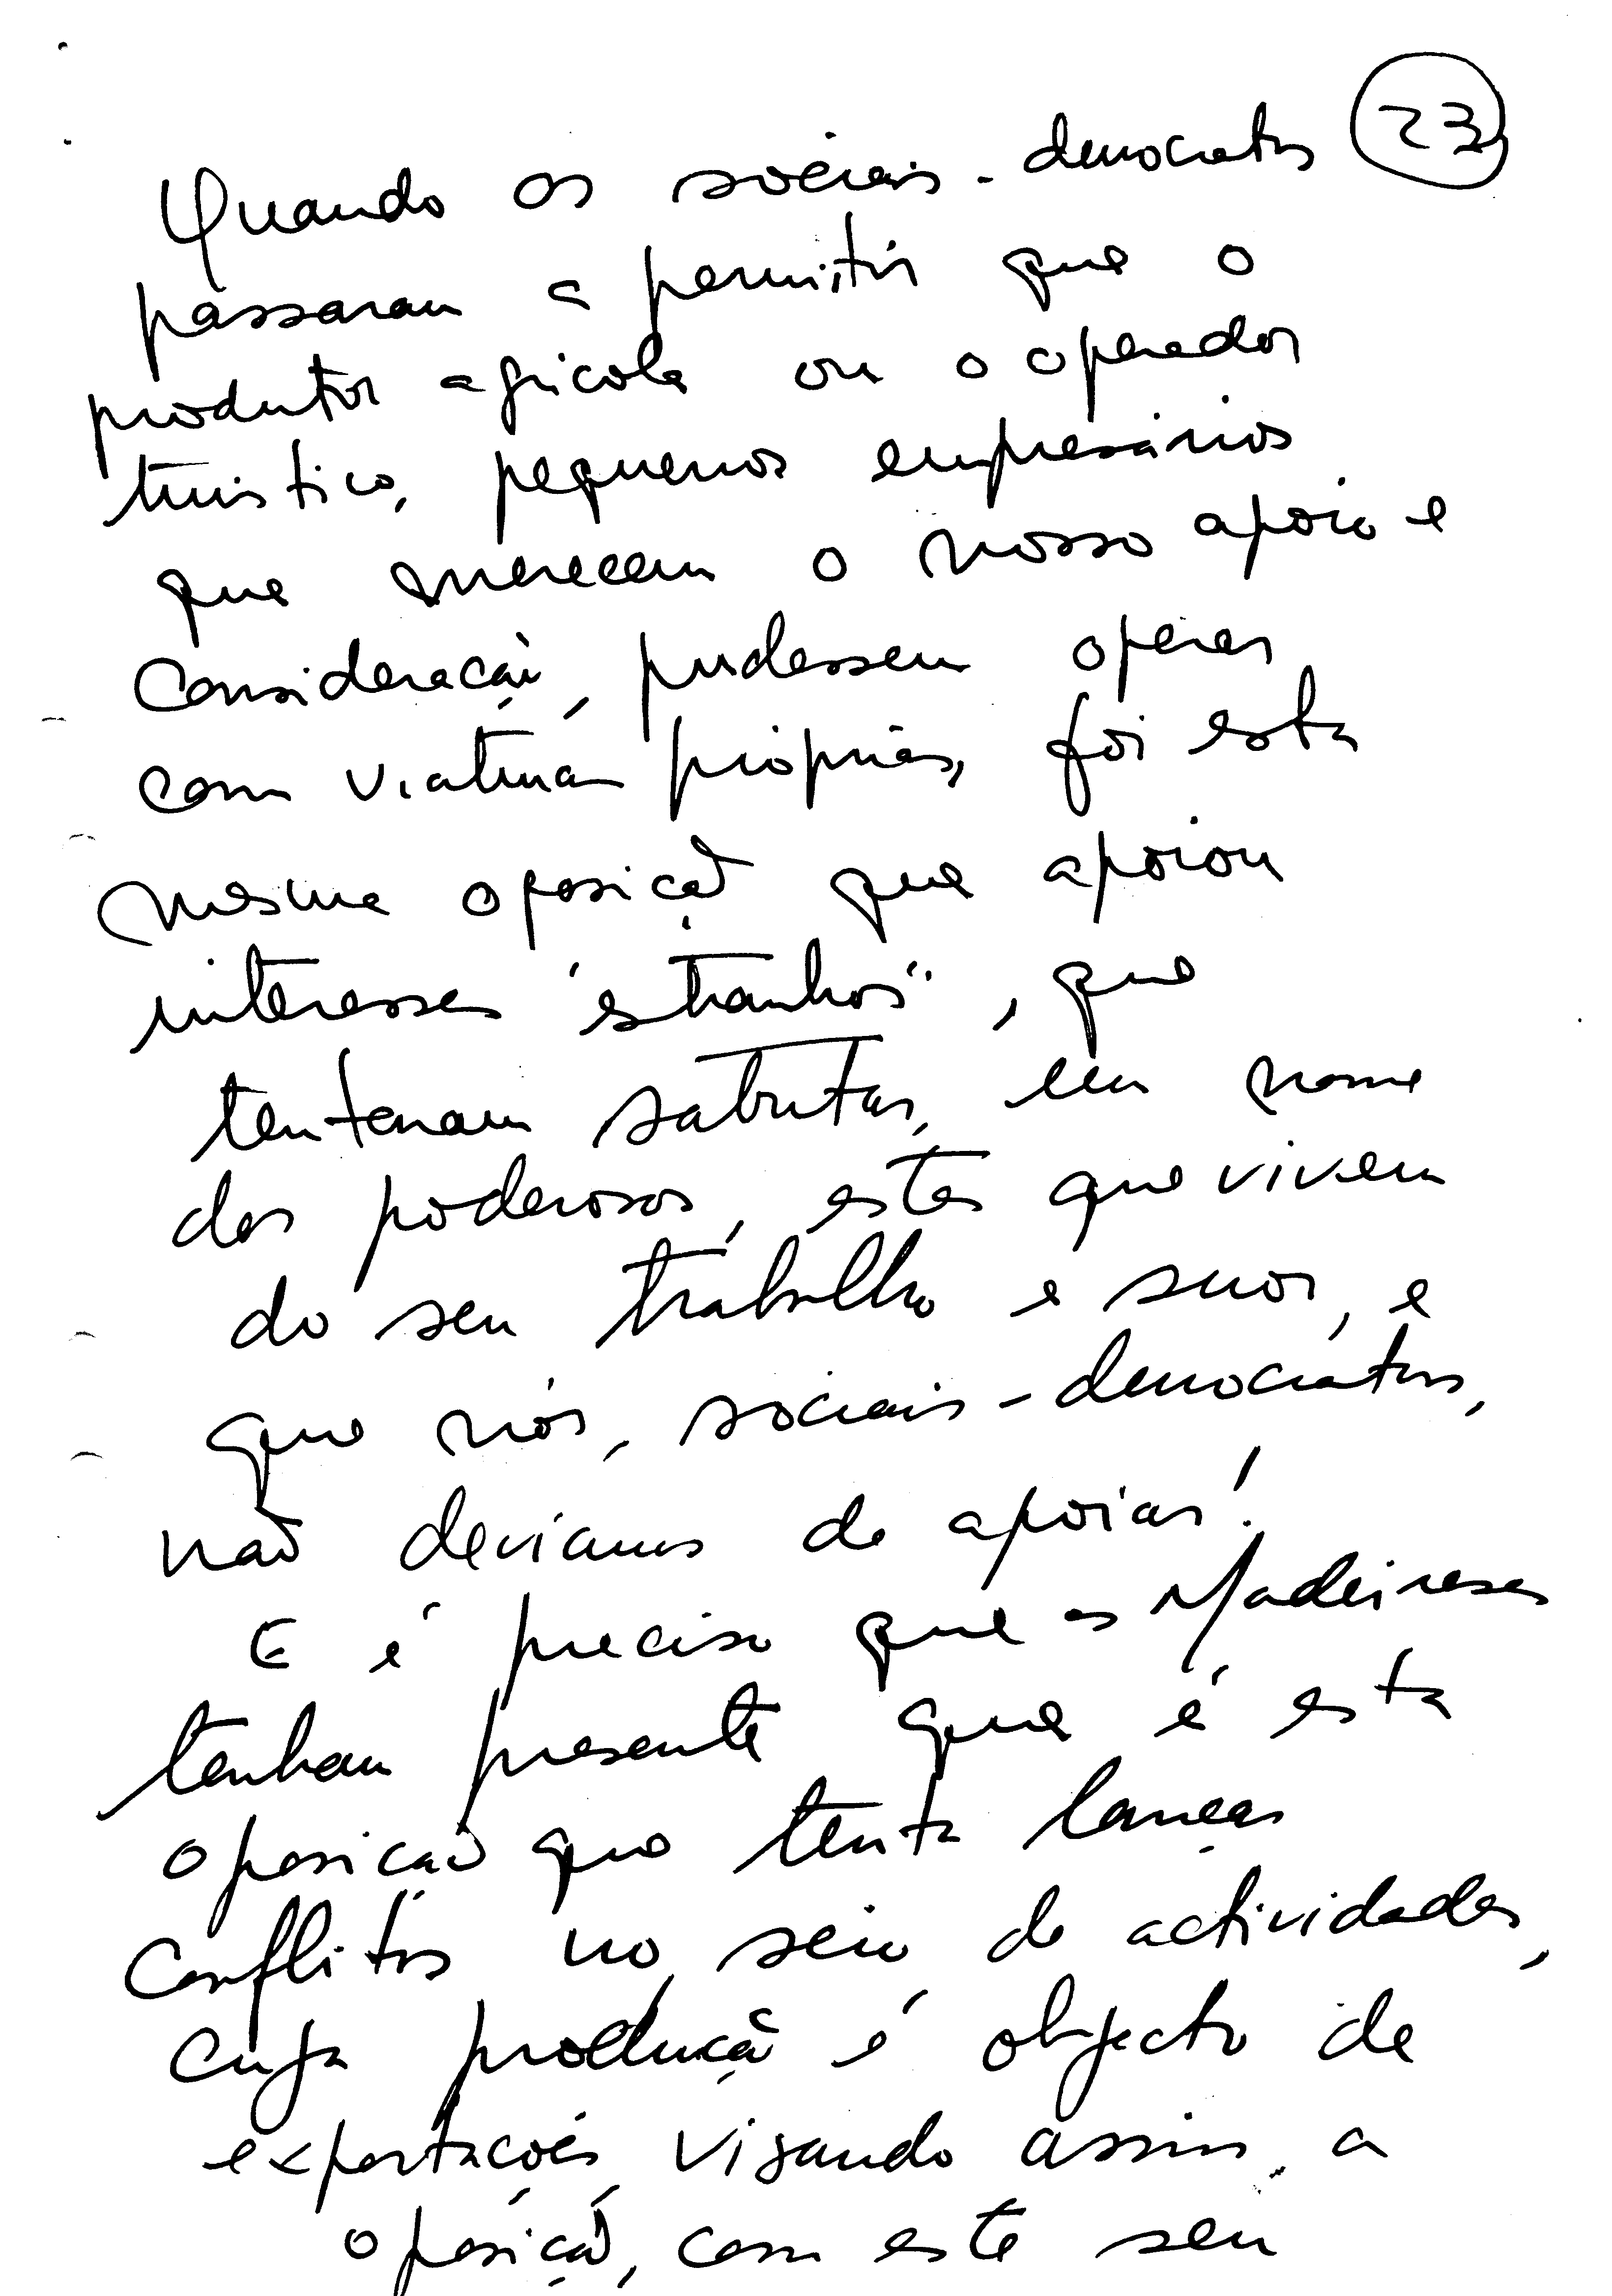 23
Quando os sociais-democratas
passaram a permitir que o
produtor agrícola ou o operador
turístico, pequenos empresários
que merecem o nosso apoio e
consideração, pudessem operar
com viaturas próprias, foi esta
mesma oposição que apoiou
interesses "estranhos", que
tentaram sabotar, em nome
dos poderosos, estes que vivem
do seu trabalho e suor, e
que nós, sociais-democratas,
não devíamos de apoiar!
E é preciso que os Madeirenses
tenham presente que é esta
oposição que tenta lançar
conflitos no seio de actividades,
cuja produção é objecto de
exportações, visando assim, a
oposição, com este seu